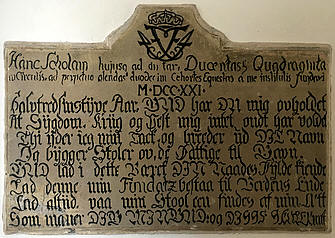 Hanc Scholam hujusq ad instar, Ducentas Quadraginta
in Circulis, ad perpetuo alendas duodec: Cohortes Equestres a me institutis fundavi
M·DCCXXI·
Halvtredsinstyve Aar, GUD har DU mig opholdet
At Sygdom, Krüg og Pest mig intet ondt har voldt
Thi yder ieg min Tack og breeder ud DIT Navn
Og bygger Skoler op, de Fattige til Gavn
GUD lad i dette Verck DIN Naades Fylde kiende
Lad denne min Fundatz bestaa til Verdens Ende
Lad altid paa min Stool een findes af min Ætt
Som maner DIG MIN GUD, og DISSE Skoler Rett